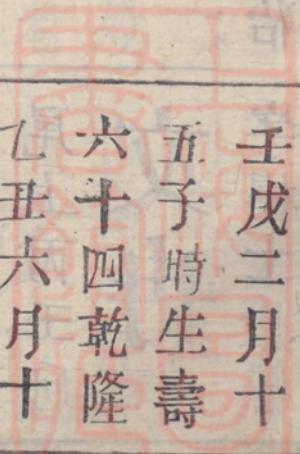 壬戌二月十
五子時生壽
六十四乾隆
乙丑六月十